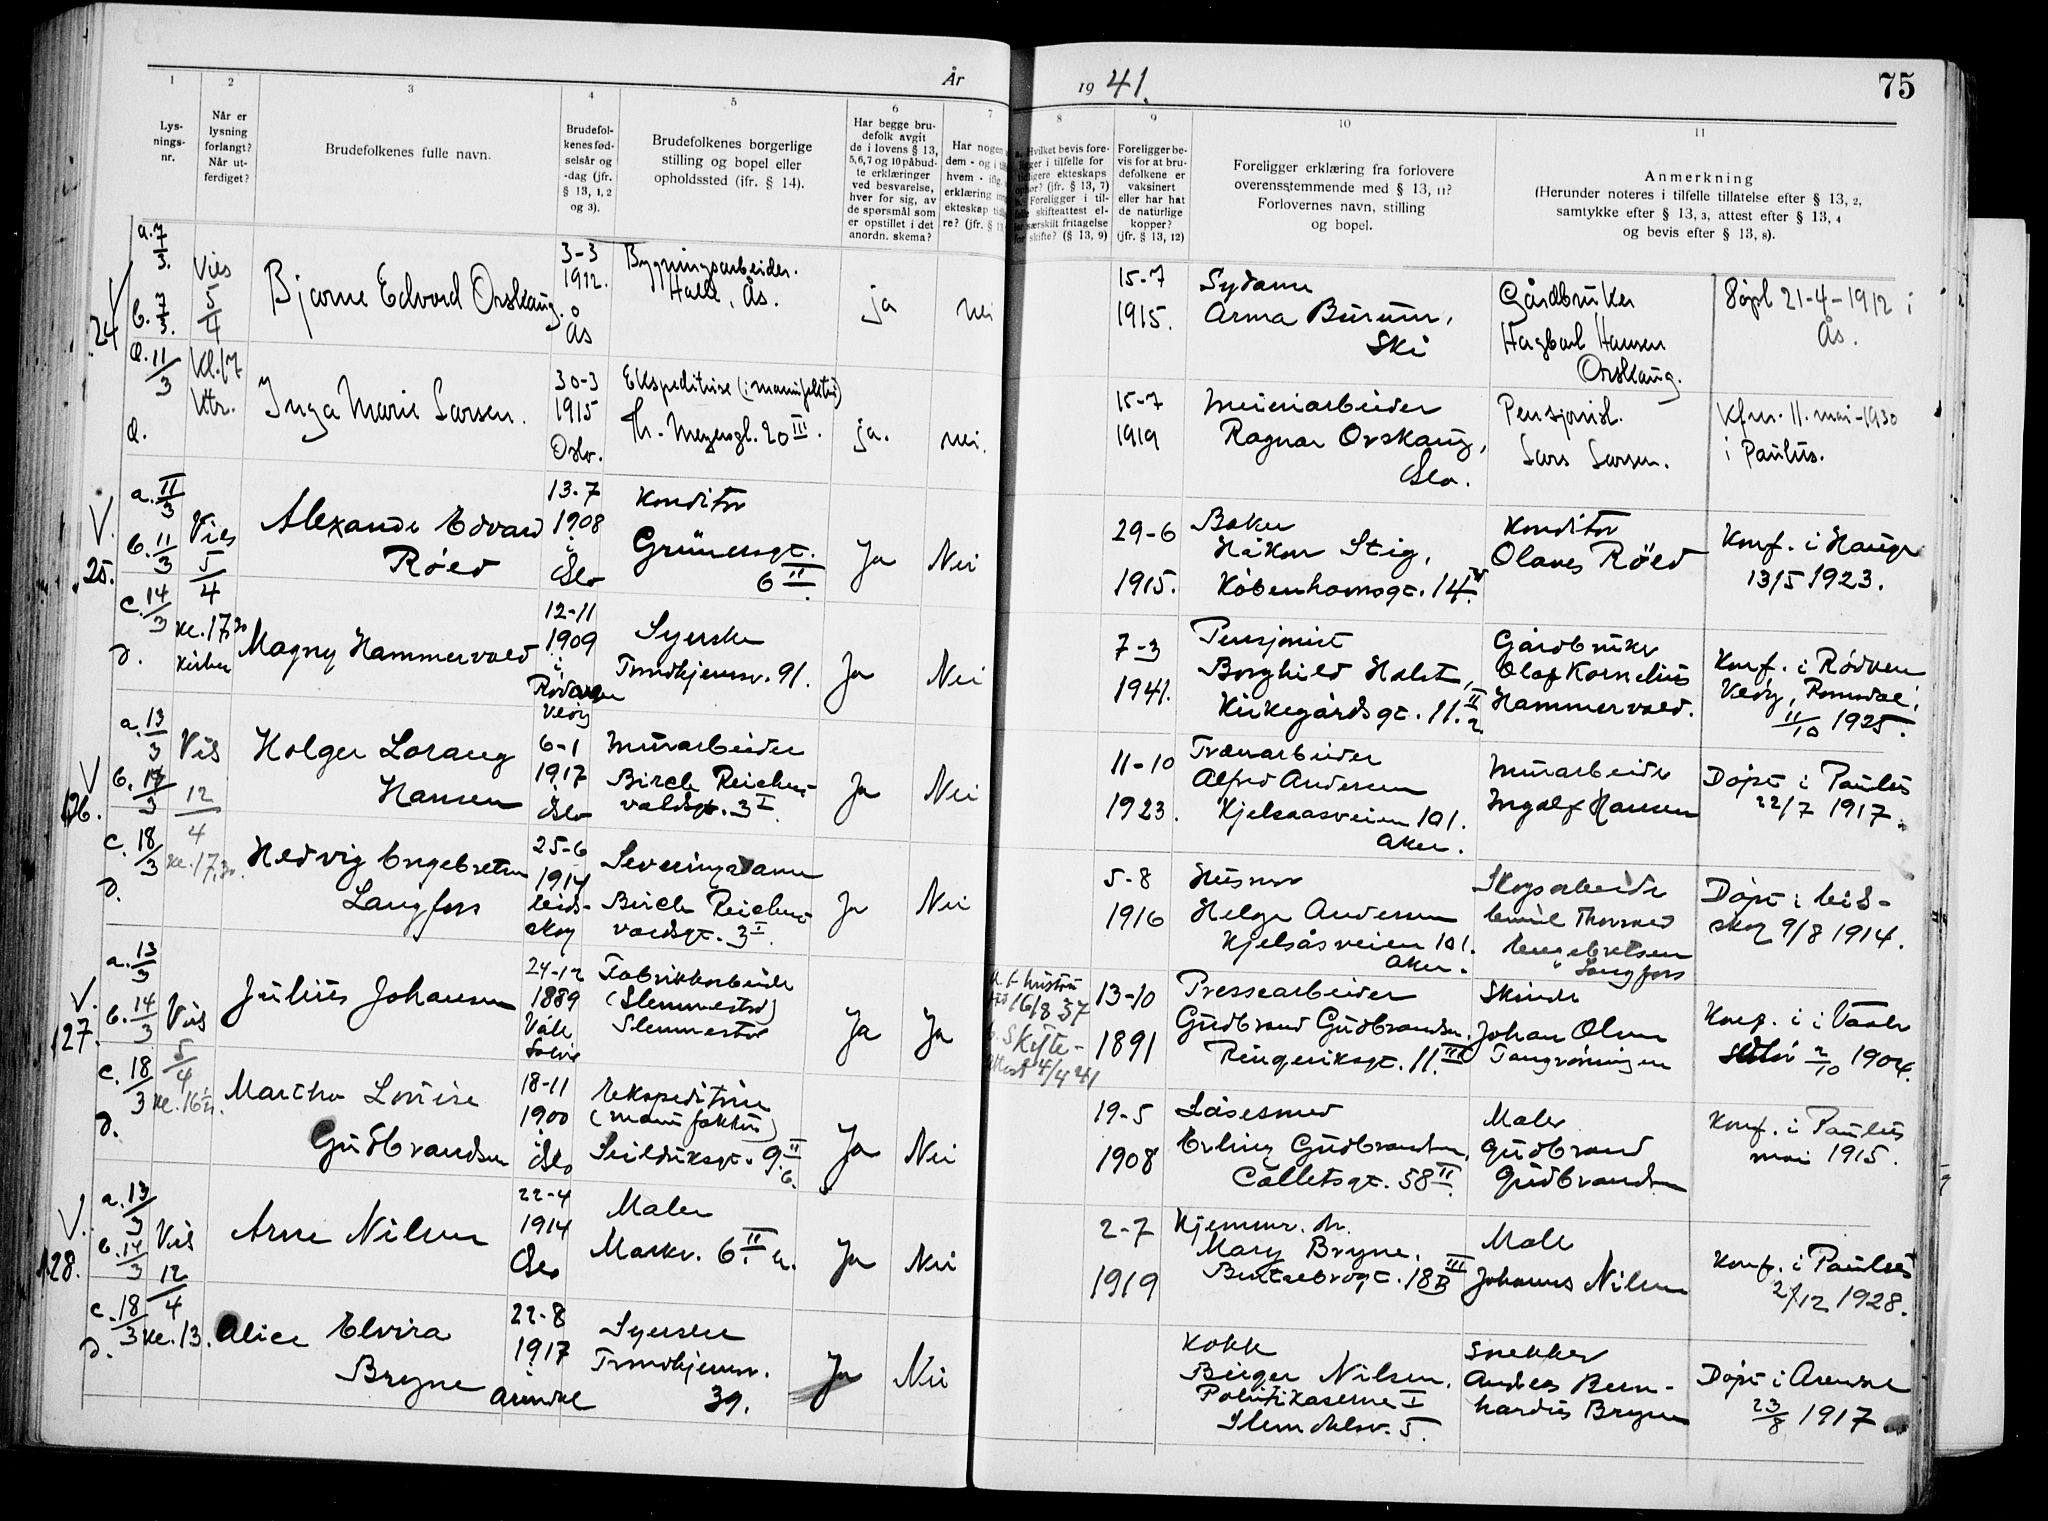 År
19 41.
75
1
2
3
4
5
6
7
8
9
10
11
Lys-
nings-
nr.
Når er
lysning
forlangt?
Når ut-
ferdiget?
Brudefolkenes fulle navn.
Brudefol-
kenes fød-
selsår og
-dag (jfr.
§ 13, 1, 2
og 3).
Brudefolkenes borgerlige
stilling og bopel eller
opholdssted (jfr. § 14).
Har begge bru-
defolk avgit
de i lovens § 13,
5, 6, 7 og 10 påbud-
te erklæringer
ved besvarelse,
hver for sig, av
de spørsmål som
er opstillet i det
anordn. skema?
Har nogen
dem - og i
hvem - ifig.
erklæring
ekteskap
re? (jfr. §
Hvilket bevis fore-
i tilfelle for
ekteskaps
(jfr. § 13, 7)
Foreligger i til-
skifteattest el-
særskilt fritagelse
skifte? (§ 13, 9)
Foreligger be-
vis for at bru-
defolkene er
vaksinert
eller har hat
de naturlige
kopper?
(jfr. § 13, 12)
Foreligger erklæring fra forlovere
overensstemmende med § 13, 11?
Forlovernes navn, stilling
og bopel.
Anmerkning
(Herunder noteres i tilfelle tillatelse efter § 13, 2,
samtykke efter § 13, 3, attest efter § 13, 4
og bevis efter § 13, 8).
24
a. 7/3.
b. 7/3.
c. 11/3
d.
Vies
5/4
Kl. 17
Bjarne Edvard Orskaug.
3-3
1912.
Ås
Bygningsarbeider.
Ås.
ja
nei
15-7
1915.
Sydame
Anna Burum,
Ski
Gårdbruker
Hagbart Hansen
Orskaug.
Døpt 21-4-1912 i
Ås.
Inga Marie Larsen.
30-3
1915
Oslo.
Th. Meyersgt. 20 III.
ja.
nei.
15-7
1919
Meieriarbeider
Ragnar Orskaug,
Oslo.
Pensjonist.
Lars Larsen.
Kfm. 11. mai-1930
i Paulus.
V.
25.
a. 11/3
b. 11/3
c. 14/3
d.
Vies
5/4
kl. 17,30
kirken
Alexander Edvard
Røed
13-7
1908
i
Oslo
Konditor
Grünersgt.
6 II.
Ja
Nei
29-6
1915.
Baker
Håkon Stig,
Københavnsgt. 14
Konditor
Olaves Røed
Konf. i Hauge
13/5 1923.
Magny Hammervold
12-11
1909
i
Rødven
Veøy
Syerske
Trondhjemsv. 91.
Ja
Nei
7-3
1941.
Pensjonist
Borghild Holst,
Kirkegårdsgt. 11. II
Gårdbruker
Olaf Kornelius
Hammervold.
Konf. i Rødven
Veøy, Romsdal,
11/10 1925.
V
126.
a. 13/3
b. 14/3
c. 18/3
d.
Vies
12/4
kl. 17,30.
Holger Lorang
Hansen
6-1
1917
i
Oslo
Murarbeider
Birch Reichen-
valdsgt. 3 I.
Ja
Nei
11-10
1923.
Alfred Andersen
Kjelsaasveien 101.
Aker.
Murarbeider
Ingolf Hansen
Døpt i Paulus
22/7 1917.
Hedvig Engebretsen
Langfoss
25-6
1914
Eids-
skog
Serveringsdame
Birch Reichen-
valdsgt. 3 I.
Ja
Nei
5-8
1916
Husmor
Helga Andersen
Kjelsåsveien 101.
Aker.
Skogsarbeider
Emil Thorvald
Engebretsen
Langfoss
Døpt i Eid-
skog 9/8 1914.
V.
127.
a. 13/3
b. 14/3
c. 18/3
d.
Vies
5/4
Julius Johansen
24-12
1889
Våle
Fabrikkarbeider
(Slemmestad)
Slemmestad
Ja
Ja
16/8 37
b. Skifte-
attest 4/4 41
13-10
1891
Pressearbeider
Gudbrand Gudbrandsen.
Ringeriksgt. 11. III
Johan Olsen
Konf. i Vaaler
Solør 2/10 1904.
Martha Louise
Gudbrandsen
18-11
1900
i
Oslo
Ekspeditrise
(manufaktur)
Seilduksgt. 9. II
Ja
Nei
19-5
1908
Låsesmed
Erling Gudbrandsen,
Colletsgt. 58 II.
Maler
Gudbrand
Gudbrandsen
Konf. i Paulus
mai 1915.
V.
128.
a. 13/3
b. 14/3
c. 18/3
d.
Vies
12/4
kl. 13.
Arne Nilsen
22-4
1914
Oslo
Maler
Markv. 6 II.
Ja
Nei
2-7
1919
Mary Bryne,
Bentsebrogt. 18B III
Maler
Johannes Nilsen
Konf. i Paulus
2/12 1928.
Alice Elvira
Bryne
22-8
1917
i
Arendal
Syerske
Trondhjemsv.
39.
Ja
Nei
Kokk
Birger Nilsen,
Politikaserne I
Slemdalsv. 5.
Snekker
Anders Bern-
hardus Bryne
Døpt i Arendal
23/8 1917